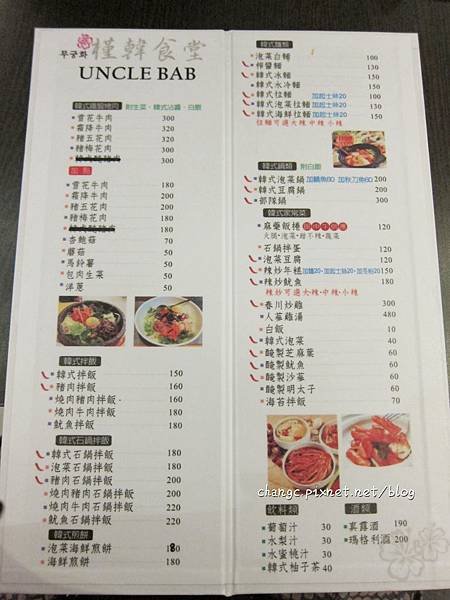 무궁화 槿韓食堂
UNCLE BAB
韓式鐵盤烤肉 附生菜、韓式沾醬、白飯
雪花牛肉 300
霜降牛肉 320
豬五花肉 320
豬梅花肉 300
300
加點
雪花牛肉 180
霜降牛肉 200
豬五花肉 200
豬梅花肉 180
180
杏鮑菇 70
蘑菇 50
馬鈴薯 50
包肉生菜 50
洋蔥 50
韓式拌飯
韓式拌飯 150
豬肉拌飯 160
燒肉豬肉拌飯 160
燒肉牛肉拌飯 180
魷魚拌飯 180
韓式石鍋拌飯
韓式石鍋拌飯 180
泡菜石鍋拌飯 180
豬肉石鍋拌飯 200
燒肉豬肉石鍋拌飯 200
燒肉牛肉石鍋拌飯 220
魷魚石鍋拌飯 220
韓式煎餅
泡菜海鮮煎餅 180
海鮮煎餅 180
韓式麵類
泡菜白麵 100
炸醬麵 130
韓式冰麵 150
韓式水冷麵 150
韓式拉麵 加起士絲20 100
韓式泡菜拉麵 加起士絲20 130
韓式海鮮拉麵 加起士絲20 150
拉麵可選大辣、中辣、小辣
韓式鍋類 附白飯
韓式泡菜鍋 加鯖魚80 加秋刀魚60 200
韓式豆腐鍋 200
部隊鍋 300
韓式家常菜
麻藥飯捲 120
火腿、泡菜、甜不辣、蔬菜
石鍋拌蛋 120
泡菜豆腐 120
辣炒年糕 加麵20、加起士絲20、加冬粉20 150
辣炒魷魚 180
辣炒可選大辣、中辣、小辣
春川炒雞 300
人蔘雞湯 480
白飯 10
韓式泡菜 40
醃製芝麻葉 60
醃製魷魚 60
醃製沙蔘 60
醃製明太子 60
海苔拌飯 70
changc.pixnet.net/blog
飲料類
葡萄汁 30
水梨汁 30
水蜜桃汁 30
韓式柚子茶 40
酒類
真露酒 190
瑪格利酒 200